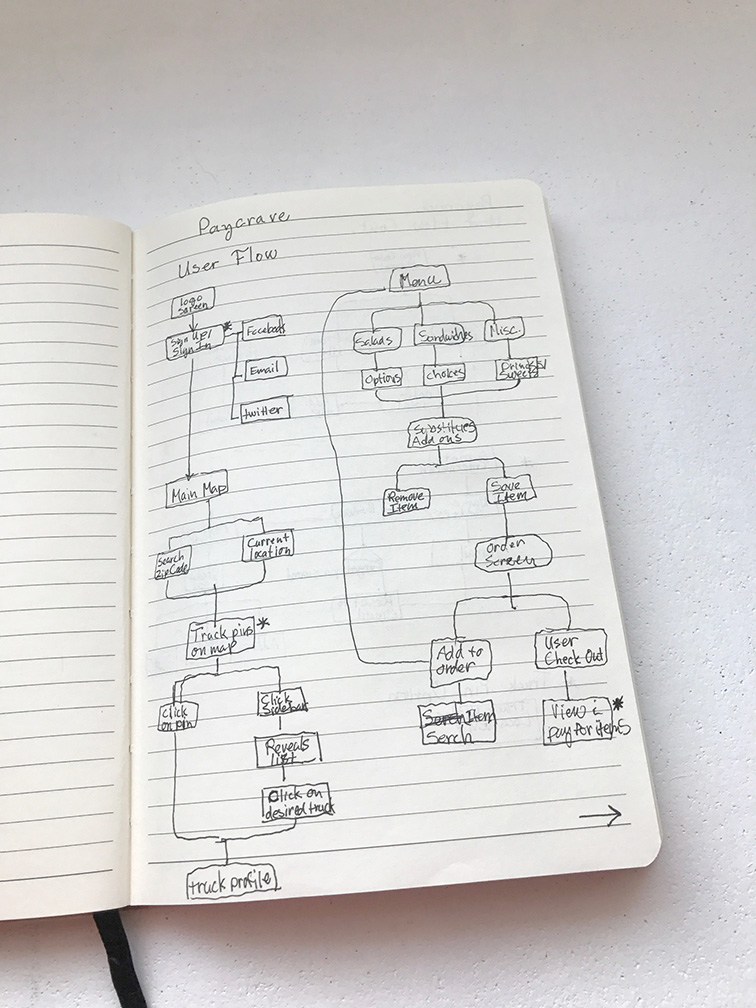 Paycrave
User Flow
logo
screen
Sign Up/
Sign In
*
Facebook
Email
twitter
Main Map
Search
zip code
Current
location
Track pins
on map
*
Click
on pin
Click
Sidebar
Reveals
list
Click on
desired truck
truck profile
Menu
Salads
Sandwiches
Misc.
Options
choices
Drinks/
Sweets
Substitues
Add ons
Remove
Item
Save
Item
Order
Screen
Add to
order
User
Check Out
Item
Serch
View &
pay for items
*
→